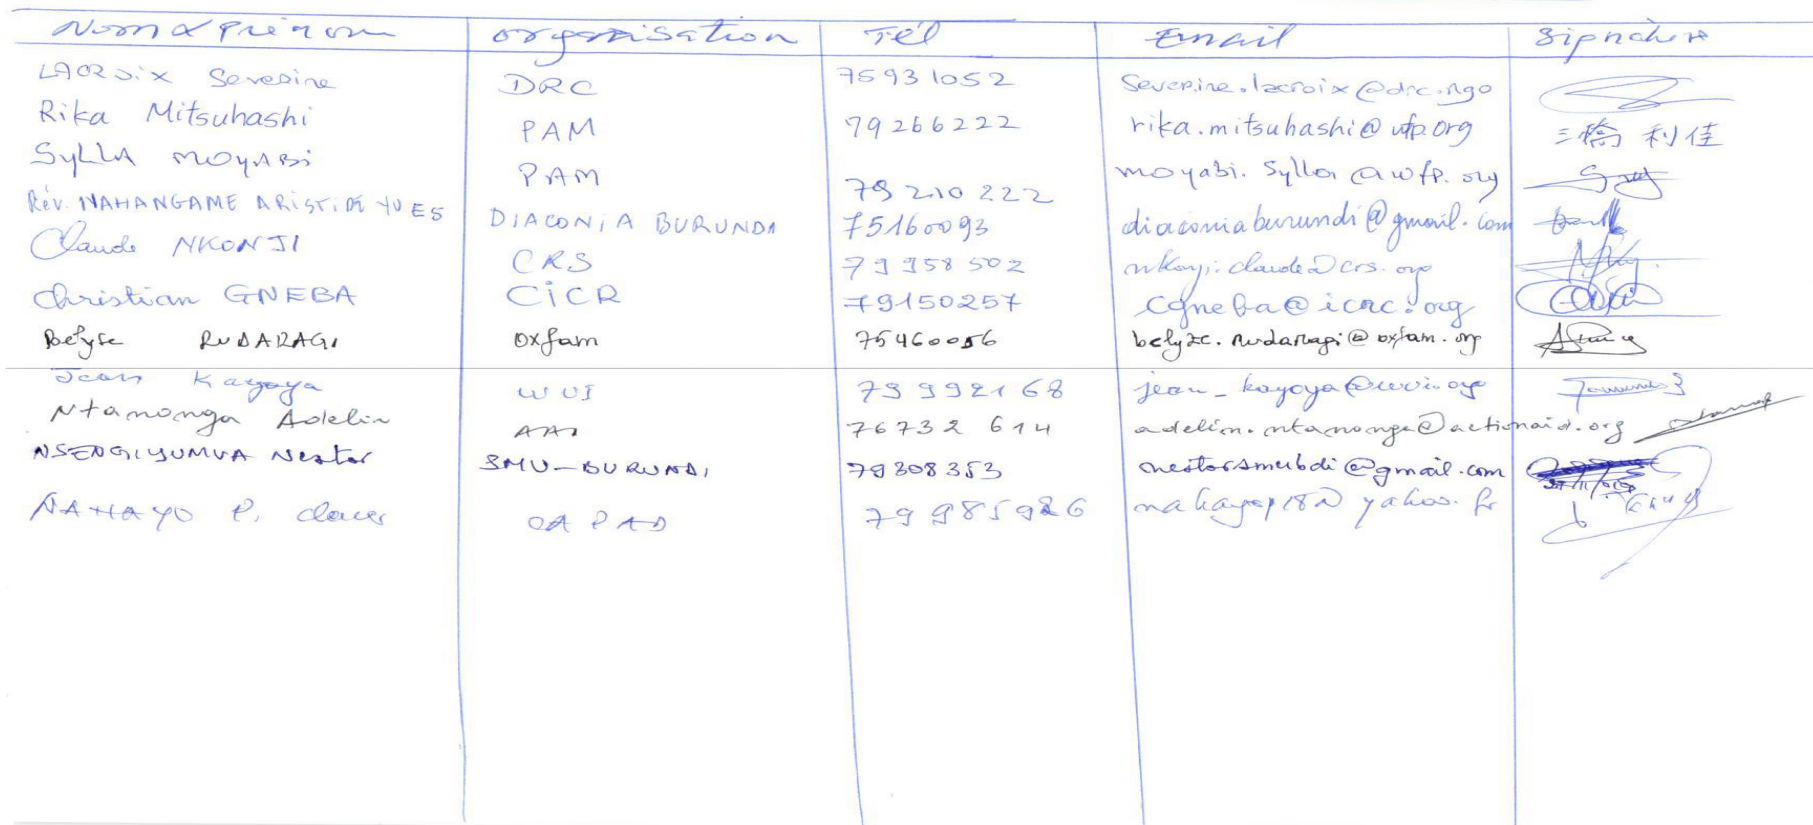 Nom & Prénom organisation Tél Email Signature
LACROIX Severine DRC 75931052 Severine.lacroix@drc.ngo
Rika Mitsuhashi PAM 79266222 rika.mitsuhashi@wfp.org 三橋 利佳
SYLLA MOYABi PAM 79210222 moyabi.sylla@wfp.org
Rév. NAHANGAME ARISTIDE YVES DIACONiA BURUNDI 75160093 diaconiaburundi@gmail.com
Claude NKONJI CRS 79958502 claude@crs.org
Christian GNEBA CiCR 79150257 cgneba@icrc.org
Belyse RUDARAGI Oxfam 75460056 @oxfam.org
Jean Kayoya 79992168
Ntamonga Adelin AAI 76732614 adelin.ntamonga@actionaid.org
NSENGIYUMVA Nestor SMU-BURUNDI 79308353 nestorsmubdi@gmail.com
NAHAYO P. claver OAPAD 79985926